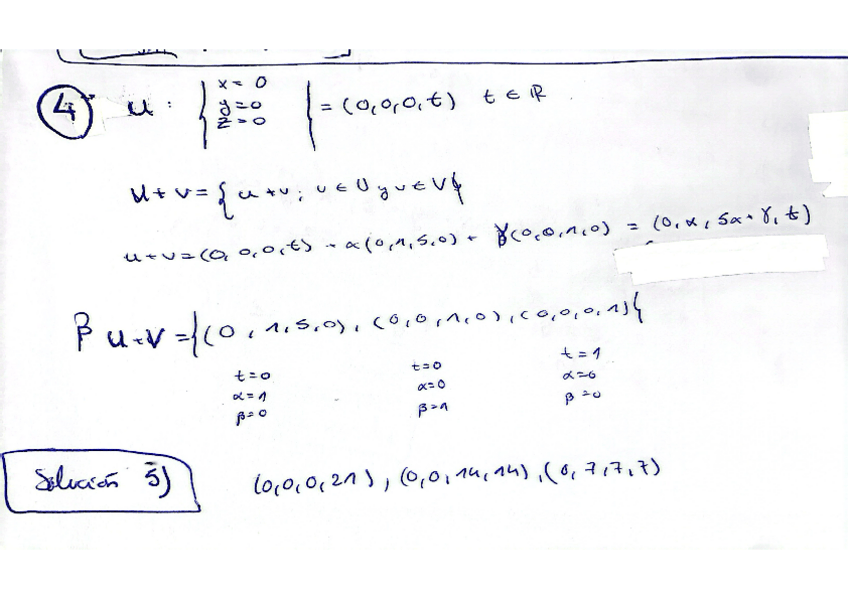 4) U : { x = 0 | = (0,0,0,t) t ∈ ℝ
y = 0
z = 0
U + V = { u + v ; u ∈ U y v ∈ V }
u + v = (0, 0, 0, t) + α(0,1,5,0) + γ(0,0,1,0) = (0, α, 5α + γ, t)
β U+V = {(0, 1, 5, 0), (0,0,1,0), (0,0,0,1)}
t=0 t=0 t=1
α=1 α=0 α=0
β=0 β=1 β=0
Solución 5) (0,0,0,21), (0,0,14,14), (0,7,7,7)